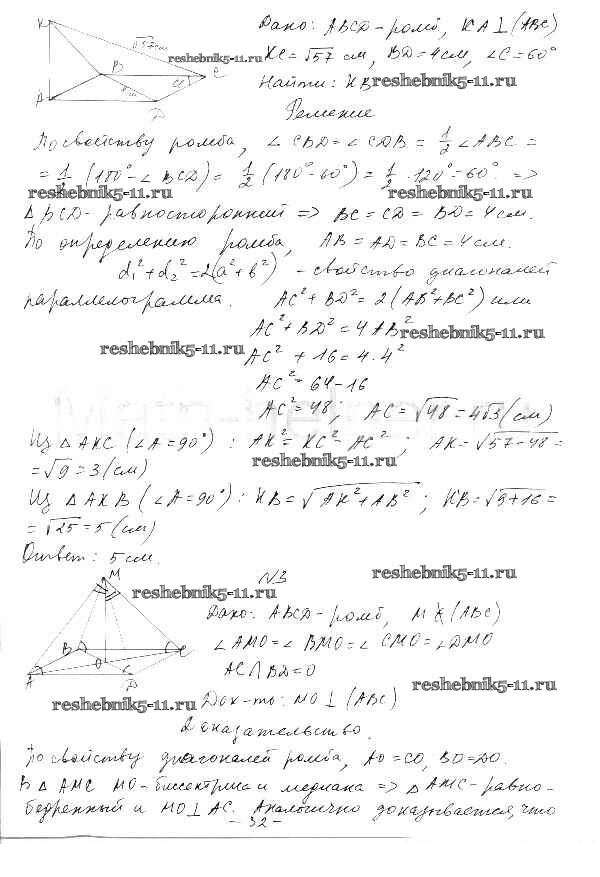 K
√57см
reshebnik5-11.ru
B
C
60°
4см
A
D
Дано: ABCD - ромб, KA⊥(ABC)
KC = √57 см, BD = 4 см, ∠C = 60°
Найти: KB reshebnik5-11.ru
Решение
По свойству ромба, ∠CBD = ∠CDB = 1/2 ∠ABC =
= 1/2 (180° - ∠BCD) = 1/2 (180° - 60°) = 1/2 · 120° = 60° =>
reshebnik5-11.ru reshebnik5-11.ru
△BCD - равносторонний => BC = CD = BD = 4 см.
По определению ромба, AB = AD = BC = 4 см.
d₁² + d₂² = 2(a² + b²) - свойство диагоналей
параллелограмма. AC² + BD² = 2(AB² + BC²) или
AC² + BD² = 4AB²
reshebnik5-11.ru
reshebnik5-11.ru
AC² + 16 = 4·4²
AC² = 64 - 16
AC² = 48; AC = √48 = 4√3 (см)
Из △AKC (∠A = 90°): AK² = KC² - AC²; AK = √57-48 =
= √9 = 3 (см)
reshebnik5-11.ru
Из △AKB (∠A = 90°): KB = √AK² + AB²; KB = √9+16 =
= √25 = 5 (см)
Ответ: 5 см.
M
N3
reshebnik5-11.ru
reshebnik5-11.ru
B
C
O
A
C
D
Дано: ABCD - ромб, M∉(ABC)
∠AMO = ∠BMO = ∠CMO = ∠DMO
AC∩BD = O
reshebnik5-11.ru
Док-ть: MO⊥(ABC)
reshebnik5-11.ru
Доказательство.
По свойству диагоналей ромба, AO = CO, BO = DO.
В △AMC MO - биссектриса и медиана => △AMC - равно-
бедренный и MO⊥AC. Аналогично доказывается, что
- 32 -